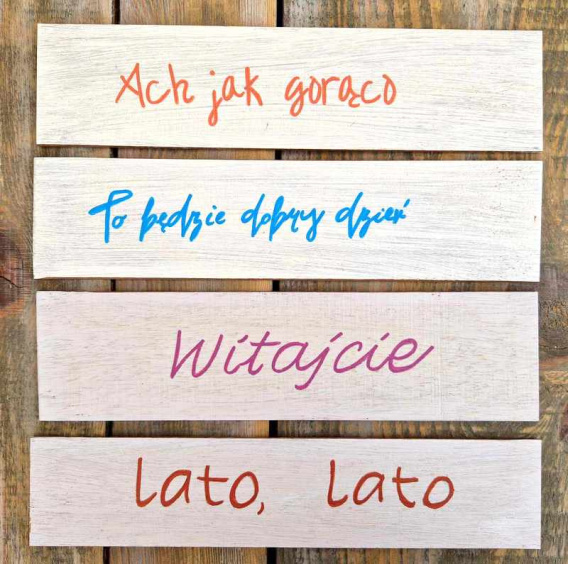 Ach jak gorąco
To będzie dobry dzień
Witajcie
lato, lato